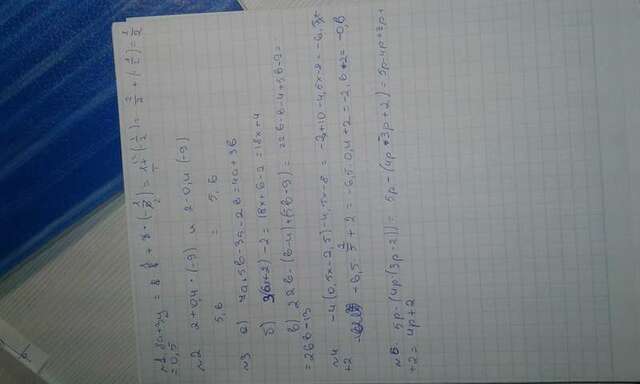 ~1. 8a+3y = 8 · 1/8 + 3 · (-1/6) = 1 + (-1/2) = 2/2 + (-1/2) = 1/2
= 0,5
~2 2+0,4 · (-9) и 2-0,4 (-9)
5,6 = 5,6
~3 а) 7a+5b-3a-2b=4a+3b
б) 3(6x+2)-2=18x+6-2=18x+4
в) 22b-(b-4)+(5b-9)= 22b-b-4+5b-9=
= 26b-13
~4 -4(0,5x-2,5)-4,5x-8= -2x+10-4,5x-8= -6,5x
+2 -6,5 · 2/5 +2 = -6,5 · 0,4+2= -2,6+2= -0,6
~5. 5p-(4p-(3p-2))= 5p-(4p-3p+2)=5p-4p+3p+
+2= 4p+2